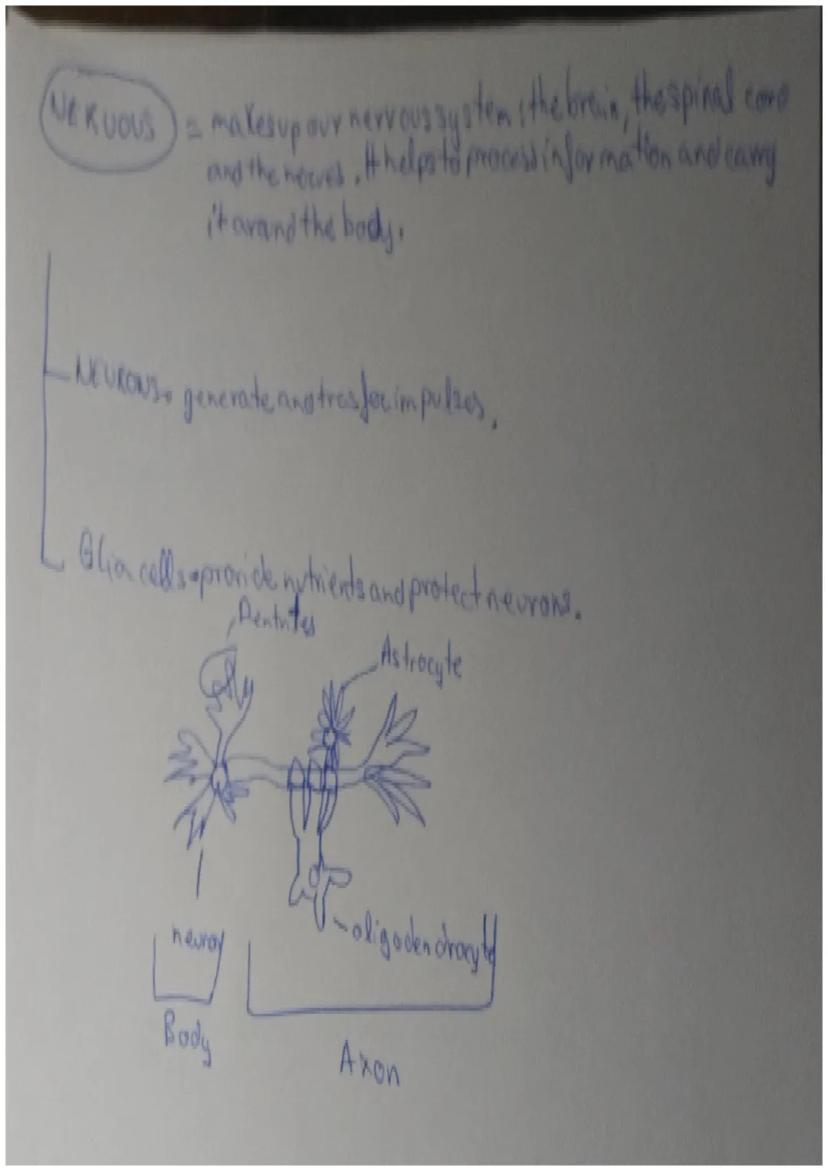 NERVOUS = makes up our nervous system: the brain, the spinal cord
and the nerves. It helps to process information and carry
it around the body.
NEURONS. generate and trasfer impulses.
Glia cells provide nutrients and protect neurons.
Dentrites
Astrocyte
oligodendrocyte
Body
Axon